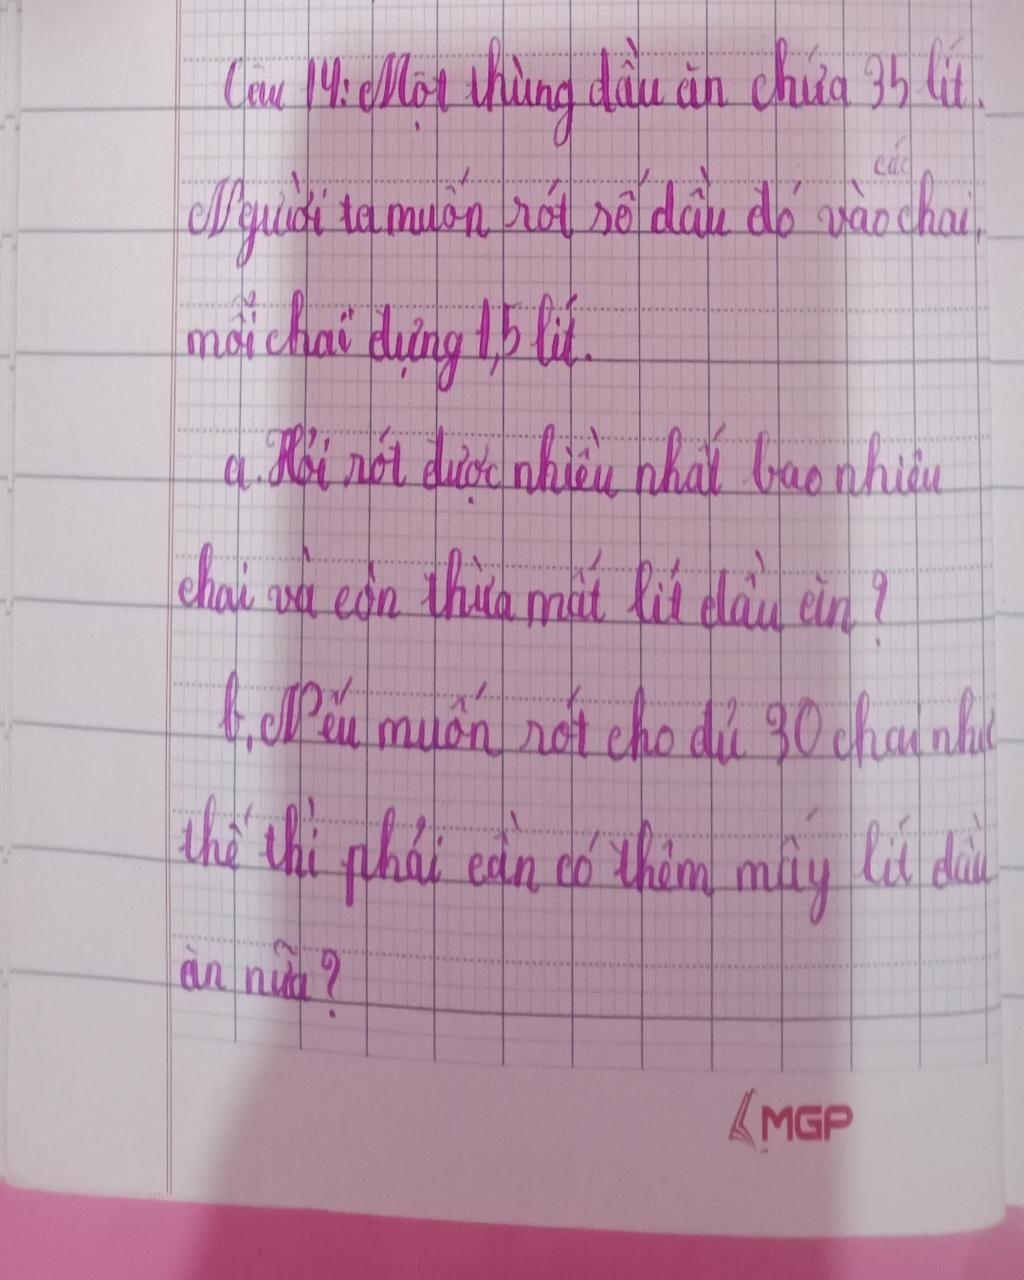 Câu 14: Một thùng dầu ăn chứa 35 lít.
Người ta muốn rót số dầu đó vào các chai,
mỗi chai đựng 1,5 lít.
a. Hỏi rót được nhiều nhất bao nhiêu
chai và còn thừa mất lít dầu ăn?
b, Nếu muốn rót cho đủ 30 chai như
thế thì phải cần có thêm mấy lít dầu
ăn nữa?
MGP